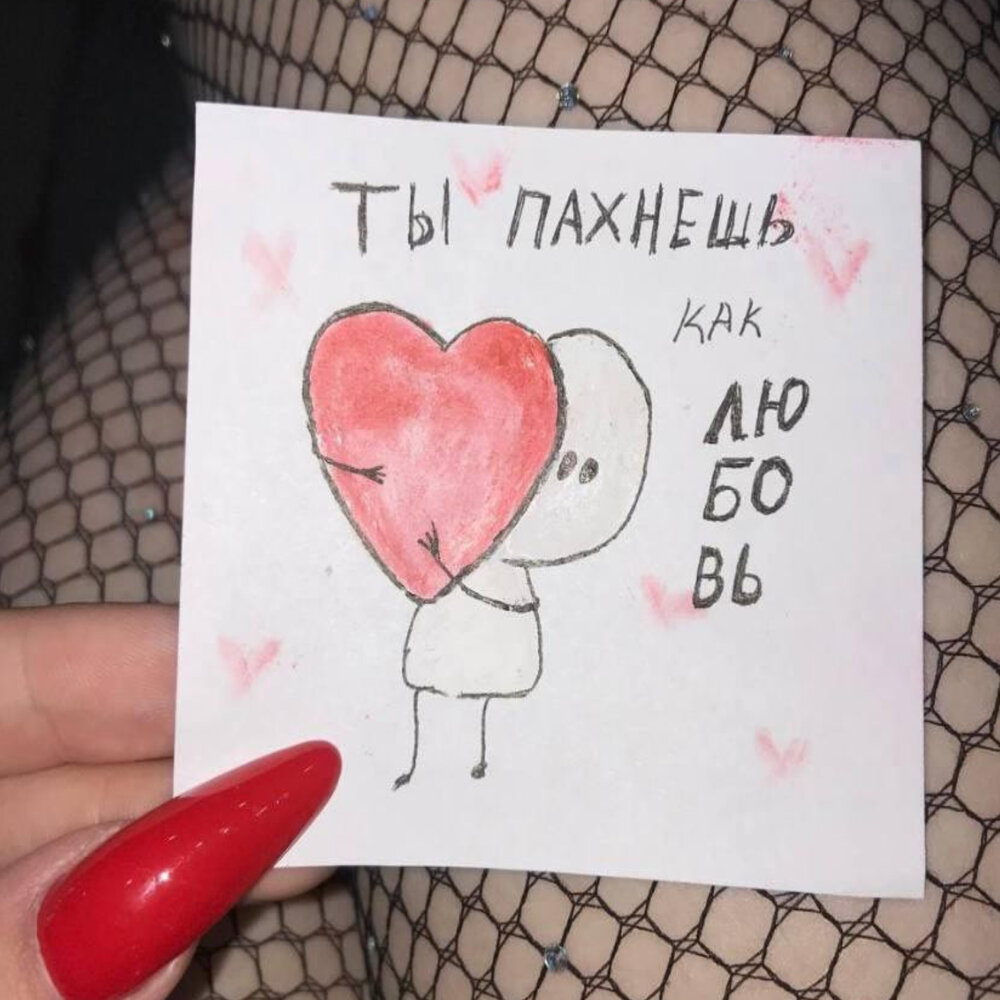 ТЫ ПАХНЕШЬ
КАК
ЛЮ
БО
ВЬ